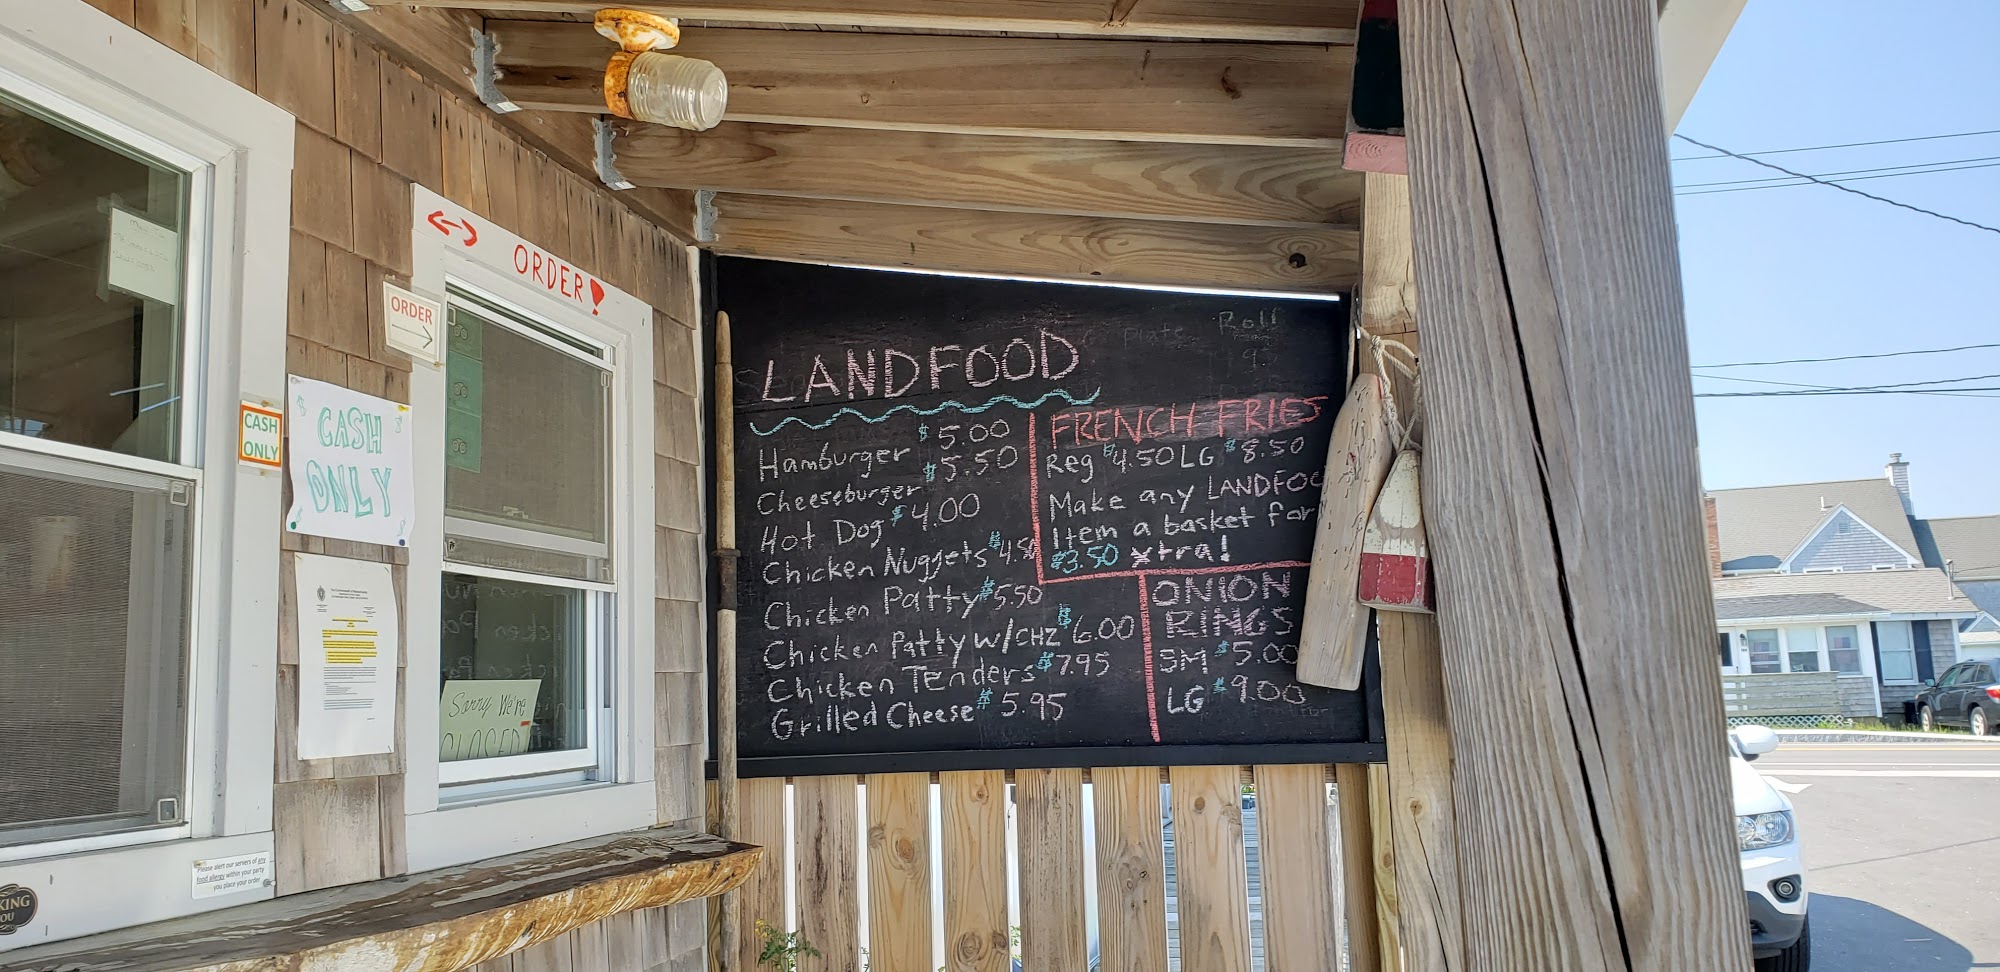 ORDER!
ORDER
CASH
ONLY
CASH
ONLY
Sorry We're
CLOSED
Please alert our servers of any
food allergy within your party
you place your order.
KING
YOU
Plate Roll
LANDFOOD
Hamburger $5.00
Cheeseburger $5.50
Hot Dog $4.00
Chicken Nuggets $4.50
Chicken Patty $5.50
Chicken Patty w/CHZ $6.00
Chicken Tenders $7.95
Grilled Cheese $5.95
FRENCH FRIES
Reg $4.50 LG $8.50
Make any LANDFOO
Item a basket for
$3.50 Xtra!
ONION
RINGS
SM $5.00
LG $9.00